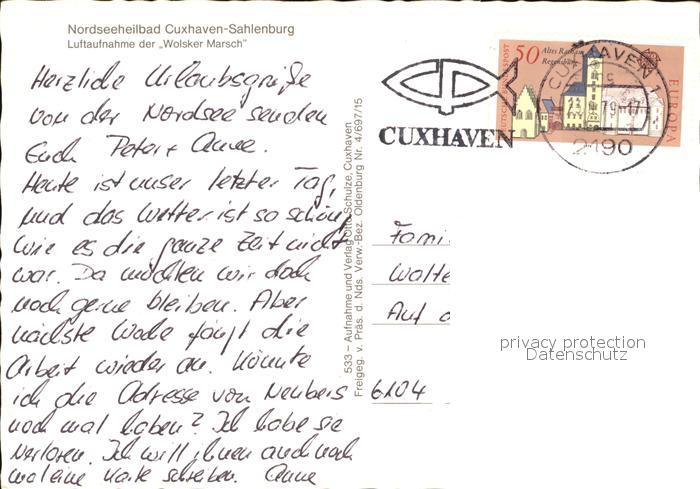 Nordseeheilbad Cuxhaven-Sahlenburg
Luftaufnahme der „Wolsker Marsch"
Herzliche Urlaubsgrüße
von der Nordsee senden
Euch Peter + Anne.
Heute ist unser letzter Tag,
und das Wetter ist so schön,
wie es die ganze Zeit nicht
war. Da möchten wir doch
noch gerne bleiben. Aber
nächste Woche fängt die
Arbeit wieder an. Könnte
ich die Adresse von Neubers
noch mal haben? Ich habe sie
verloren. Ich will ihnen auch noch
mal eine Karte schreiben. Anne
533 – Aufnahme und Verlag Otto Schulze, Cuxhaven
Freigeg. v. Präs. d. Nds. Verw.-Bez. Oldenburg Nr. 4/697/15
CUXHAVEN
50 Altes Rathaus
Regensburg
DEUTSCHE BUNDESPOST
EUROPA
CUXHAVEN 1
79-17
2190
Fami
Walte
Auf d
6104
privacy protection
Datenschutz